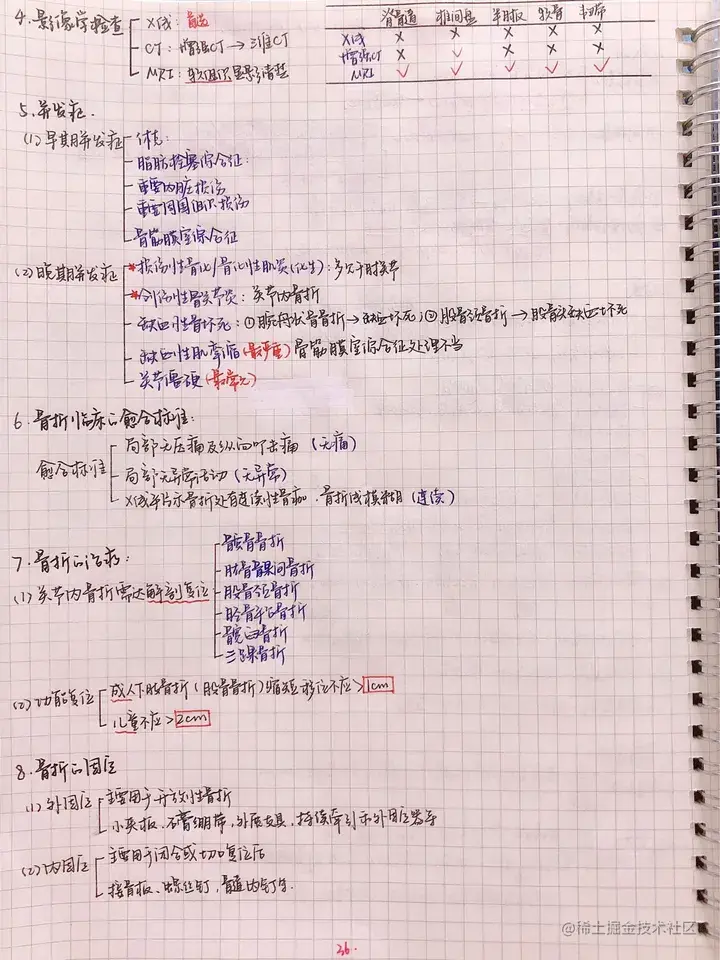 4. 影像学检查 X线: 首选
CT: 增强CT → 三维CT
MRI: 软组织显影清楚
脊髓 椎间盘 半月板 软骨 韧带
X线 × × × × ×
增强CT × ✓ × × ×
MRI ✓ ✓ ✓ ✓ ✓
5. 并发症.
(1) 早期并发症 休克:
脂肪栓塞综合征:
重要内脏损伤
重要周围组织损伤
骨筋膜室综合征
(2) 晚期并发症 *损伤性骨化/骨化性肌炎(化生): 多次于肘关节
*创伤性骨关节炎: 关节内骨折
缺血性骨坏死: ① 腕舟状骨骨折 → 缺血坏死; ② 股骨颈骨折 → 股骨头缺血坏死
缺血性肌挛缩 (最严重) 骨筋膜室综合征处理不当
关节僵硬 (最常见)
6. 骨折临床的愈合标准:
愈合标准 局部无压痛及纵向叩击痛 (无痛)
局部无异常活动 (无异常)
X线平片示骨折处有连续性骨痂, 骨折线模糊 (连续)
7. 骨折的治疗:
(1) 关节内骨折需达解剖复位 髌骨骨折
肱骨髁间骨折
股骨颈骨折
胫骨平台骨折
髋臼骨折
三踝骨折
(2) 功能复位 成人下肢骨折 (股骨骨折) 缩短移位不应> 1cm
儿童不应> 2cm
8. 骨折的固定
(1) 外固定 主要用于开放性骨折
小夹板、石膏绷带、外展支具, 持续牵引和外固定器等
(2) 内固定 主要用于闭合或切口复位后
接骨板、螺丝钉, 髓内钉等.
36.
@稀土掘金技术社区